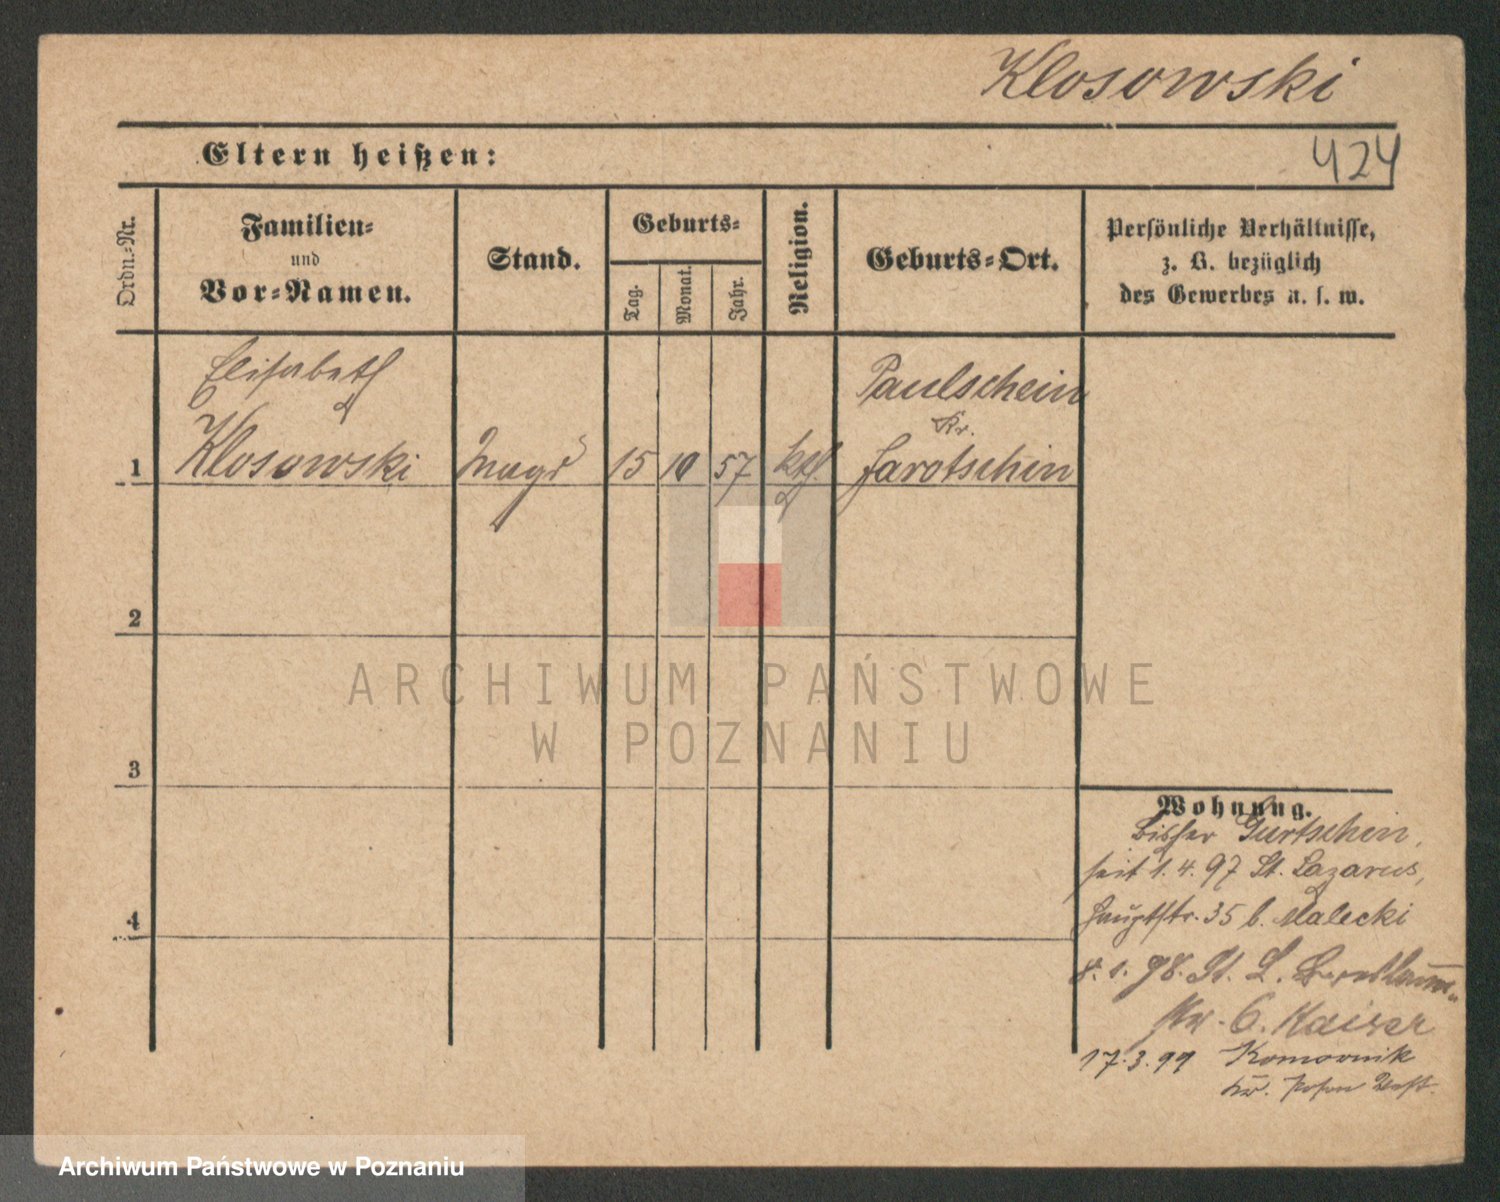 Klosowski
Eltern heißen:
424
Ordn.-Nr.
Familien-
und
Vor-Namen.
Stand.
Geburts-
Tag.
Monat.
Jahr.
Religion.
Geburts-Ort.
Persönliche Verhältnisse,
z. B. bezüglich
des Gewerbes u. s. w.
Elisabeth
Paulschein
Kr.
1 Klosowski Magd 15 10 57 kth. Jarotschin
2
3
4
ARCHIWUM PAŃSTWOWE
W POZNANIU
Wohnung.
bisher Gurtschin,
seit 1.4.97 St. Lazarus,
Hauptstr. 35 b. Malecki
8.1.98. St. L.
6. Kaiser
17.3.99 Komornik
Kr. Posen West.
Archiwum Państwowe w Poznaniu